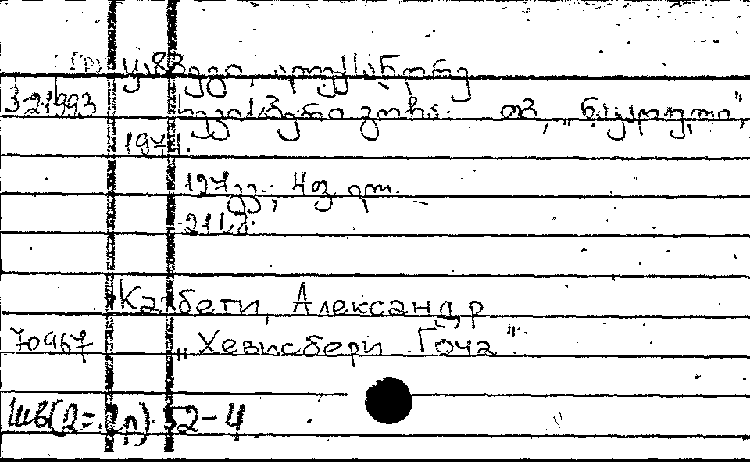 ყაზბეგი, ალექსანდრე
ხევისბერი გოჩა. თბ, „ნაკადული",
1971.
127გვ; 4ფ. ილ.
21სმ.
Казбеги, Александр
70967 „Хевисбери Гоча"
52-4